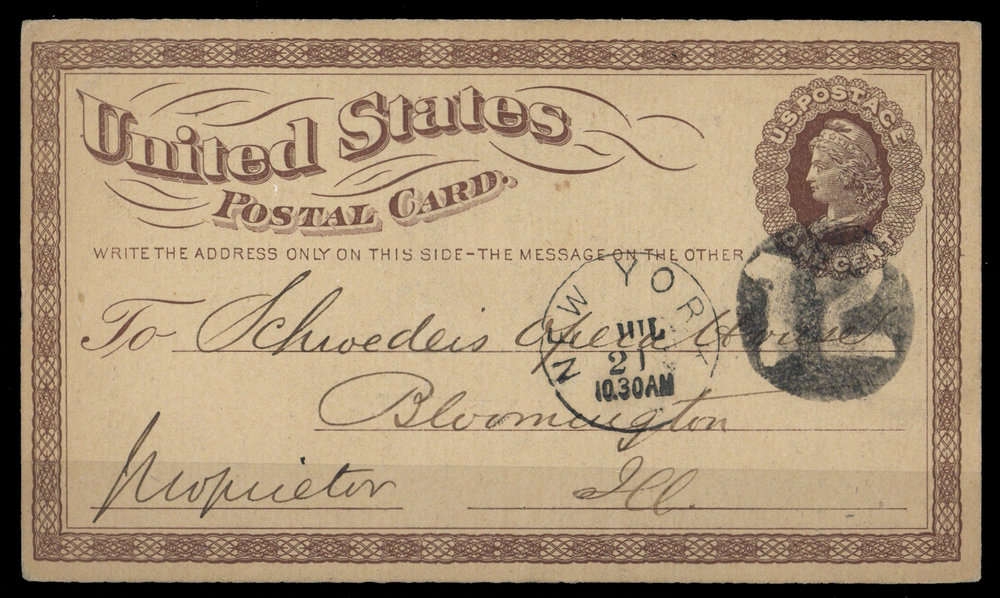 United States
POSTAL CARD.
U.S. POSTAGE
ONE CENT
WRITE THE ADDRESS ONLY ON THIS SIDE - THE MESSAGE ON THE OTHER
To Schroeders Opera House
Bloomington
Proprietor Ill.
NEW YORK
JUL
21
10.30AM
12